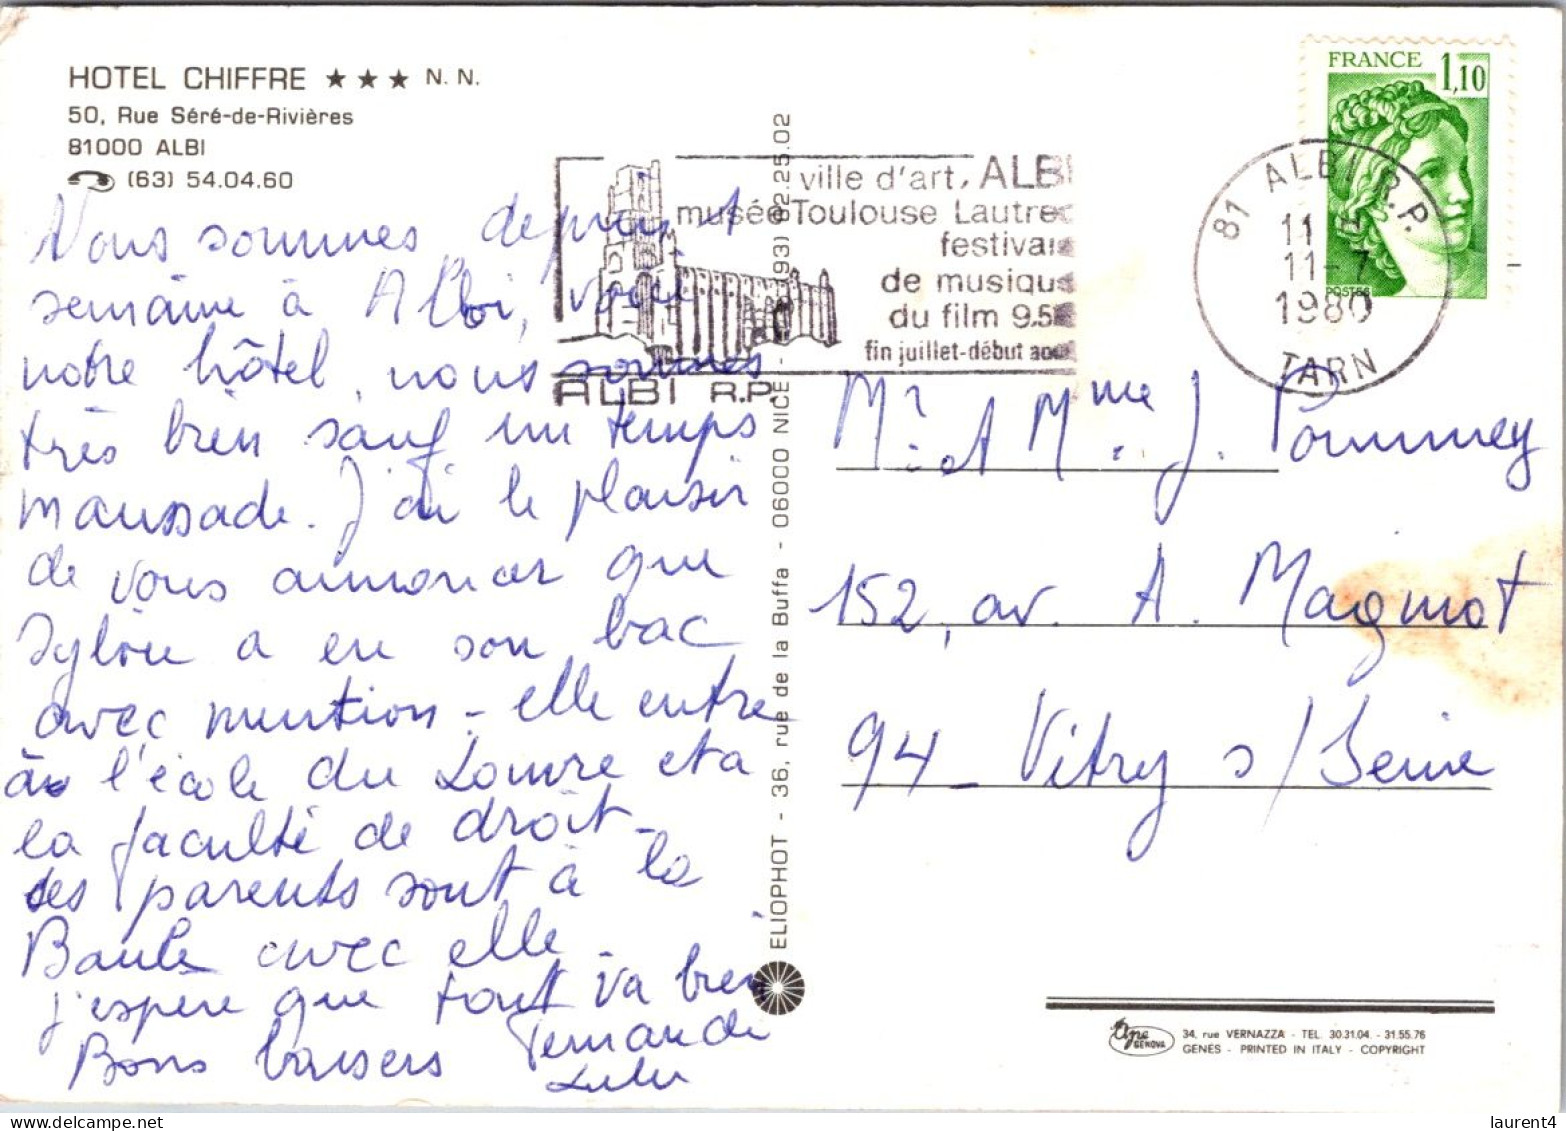 HOTEL CHIFFRE ★ ★ ★ N. N.
50, Rue Séré-de-Rivières
81000 ALBI
(63) 54.04.60
Nous sommes, depuis 1
semaine à Albi, voici
notre hôtel, nous sommes
très bien sauf un temps
maussade. J'ai le plaisir
de vous annoncer que
Sylvie a eu son bac
avec mention - elle entre
à l'école du Louvre et a
la faculté de droit -
ses parents sont à la
Baule avec elle -
j'espère que tout va bien
Bons baisers Fernande
Lulu
ville d'art, ALBI
musée Toulouse Lautrec
festival
de musique
du film 9.5
fin juillet-début août
ALBI R.P.
ELIOPHOT - 36, rue de la Buffa - 06000 NICE - (93) 82.25.02
FRANCE 1,10
POSTES
81 ALBI R.P.
11
11-7
1980
TARN
Mr et Mme J. Pommey
152, av. A. Magnot
94 - Vitry s/Seine
34, rue VERNAZZA - TEL. 30.31.04. - 31.55.76
GENOVA
GENES - PRINTED IN ITALY - COPYRIGHT
delcampe.net
laurent4